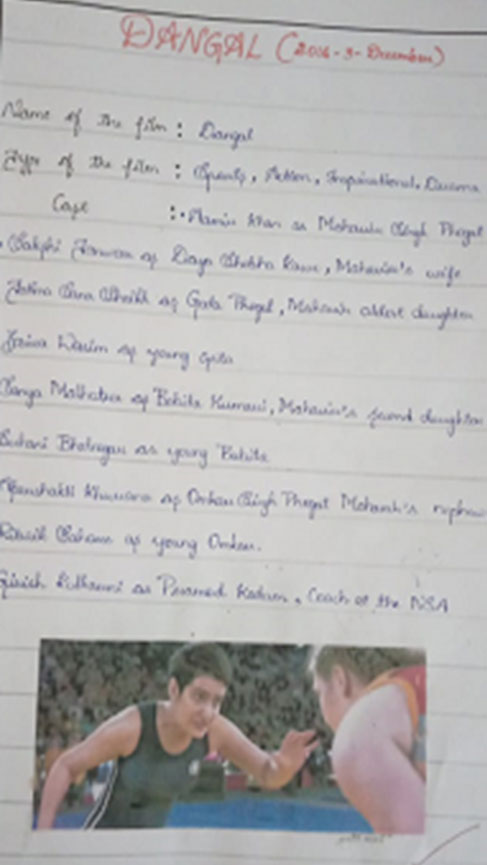 DANGAL (2016-3-December)
Name of the film : Dangal
Type of the film : Sports, Action, Inspirational, Drama
Cast :• Aamir Khan as Mahavir Singh Phogat
Sakshi Tanwar as Daya Shobha Kaur, Mahavir's wife
Fatima Sana Shaikh as Geeta Phogat, Mahavir oldest daughter
Zaira Wasim as young Geeta
Sanya Malhotra as Babita Kumari, Mahavir's second daughter
Suhani Bhatnagar as young Babita
Aparshakti Khurana as Omkar Singh Phogat Mahavir's nephew
Ritwik Sahore as young Omkar.
Girish Kulkarni as Pramod Kadam, Coach at the NSA